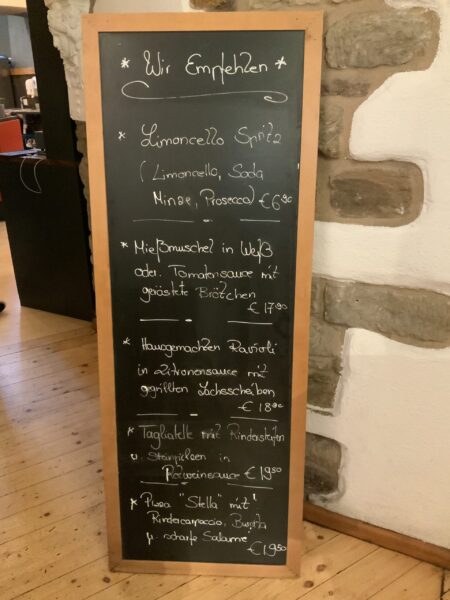 * Wir Empfehlen *
* Limoncello Spritz
( Limoncello, Soda
Minze, Prosecco) €6,90
* Mießmuschel in Weiß
oder Tomatensauce mit
geröstete Brötchen
€ 17,90
* Hausgemachten Ravioli
in Zitronensauce mit
gegrillten Lachsscheiben
€ 18,90
* Tagliatelle mit Rinderstreifen
u. Steinpilzen in
Rotweinsauce €19,50
* Pizza "Stella" mit
Rindercarpaccio, Burrata
u. scharfe Salame
€19,50